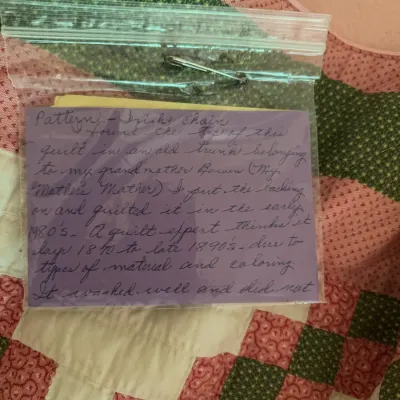 Pattern - Irish Chain
I found the top of this
quilt in an old trunk belonging
to my grandmother Brown (My
Mother's Mother) I put the backing
on and quilted it in the early
1980's. A quilt expert thinks it
days 1870 to late 1890's due to
types of material and coloring
It washed well and did not